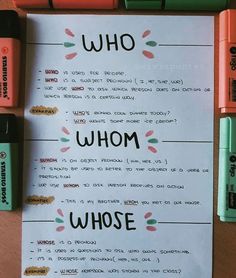 WHO
- WHO IS USED FOR PEOPLE
- WHO IS A SUBJECT PRONOUN ( I, HE, SHE, WE)
- WE USE WHO TO ASK WHICH PERSON DOES AN ACTION OR
WHICH PERSON IS A CERTAIN WAY.
EXAMPLES
- WHO'S MAKING DINNER TODAY?
- WHO WANTS SOME MORE ICE CREAM?
WHOM
- WHOM IS AN OBJECT PRONOUN ( HIM, HER, US )
- IT SHOULD BE USED TO REFER TO THE OBJECT OF A VERB OR
PREPOSITION
- WE USE WHOM TO ASK PERSON RECEIVES AN ACTION
EXAMPLE
- THIS IS MY BROTHER WHOM YOU MET AT OUR HOUSE.
WHOSE
- WHOSE IS A PRONOUN
- IT IS USED IN QUESTIONS TO ASK WHO OWNS SOMETHING
- IT'S A POSSESSIVE PRONOUN ( HER, HIS, OUR )
EXAMPLE
- WHOSE HOMEWORK WAS SHOWN IN THE CLASS?
STABILO BOSS
STABILO BOSS